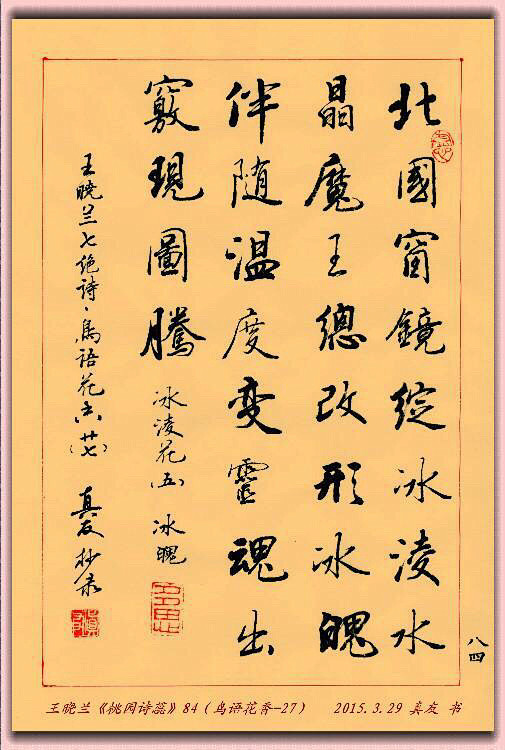 八四
北國窗鏡綻冰凌水
晶魔王總改形冰魄
伴随温度变靈魂出
竅現圖騰 冰凌花(五) 冰魄
王曉兰七绝诗·鳥语花香(廿七) 真友抄录
王晓兰《桃园诗蕊》84（鸟语花香-27） 2015.3.29 真友 书